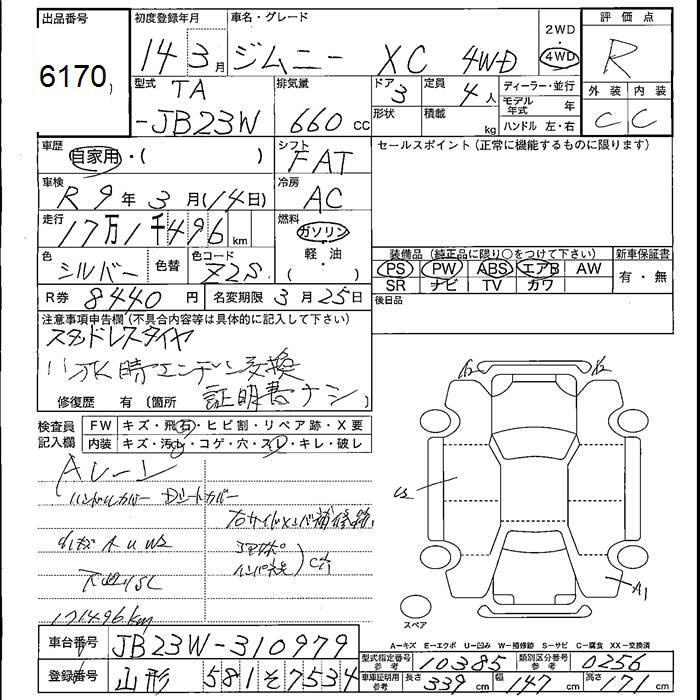 出品番号 初度登録年月 車名・グレード 2WD・4WD 評価点
6170 14 3月 ジムニー XC 4WD R
型式 TA 排気量 ドア 3 定員 4人 ディーラー・並行 外装 内装
-JB23W 660cc 形状 積載 kg モデル年式 年 C C
ハンドル 左・右
車歴 自家用・( ) シフト FAT セールスポイント(正常に機能するものに限ります)
車検 R9年3月(14日) 冷房 AC
走行 17万1千496km 燃料 ガソリン
軽油
・( )
色 シルバー 色替 色コード Z2S 装備品(純正品に限り○をつけて下さい) 新車保証書
PS PW ABS エアB AW 有・無
SR ナビ TV カワ
R券 8440円 名変期限 3月25日 後日品
注意事項申告欄(不具合内容等は具体的に記入して下さい)
スタッドレスタイヤ
ハ水時エンジン交換
証明書ナシ
修復歴 有(箇所 )
検査員記入欄 FW キズ・飛石・ヒビ割・リペア跡・X要
内装 キズ・汚れ・コゲ・穴・スレ・キレ・破レ
Aレーン
ハンドルカバー Dシートカバー
右サイドメンバ補修跡
171496km
U2
A1
スペア
A-キズ E-エクボ U-凹み W-補修跡 S-サビ C-腐食 XX-交換済
車台番号 JB23W-310979
登録番号 山形 581 そ 7534
型式指定番号 参考 10385 類別区分番号 参考 0256
車庫証明用 参考 長さ 339cm 幅 147cm 高さ 171cm